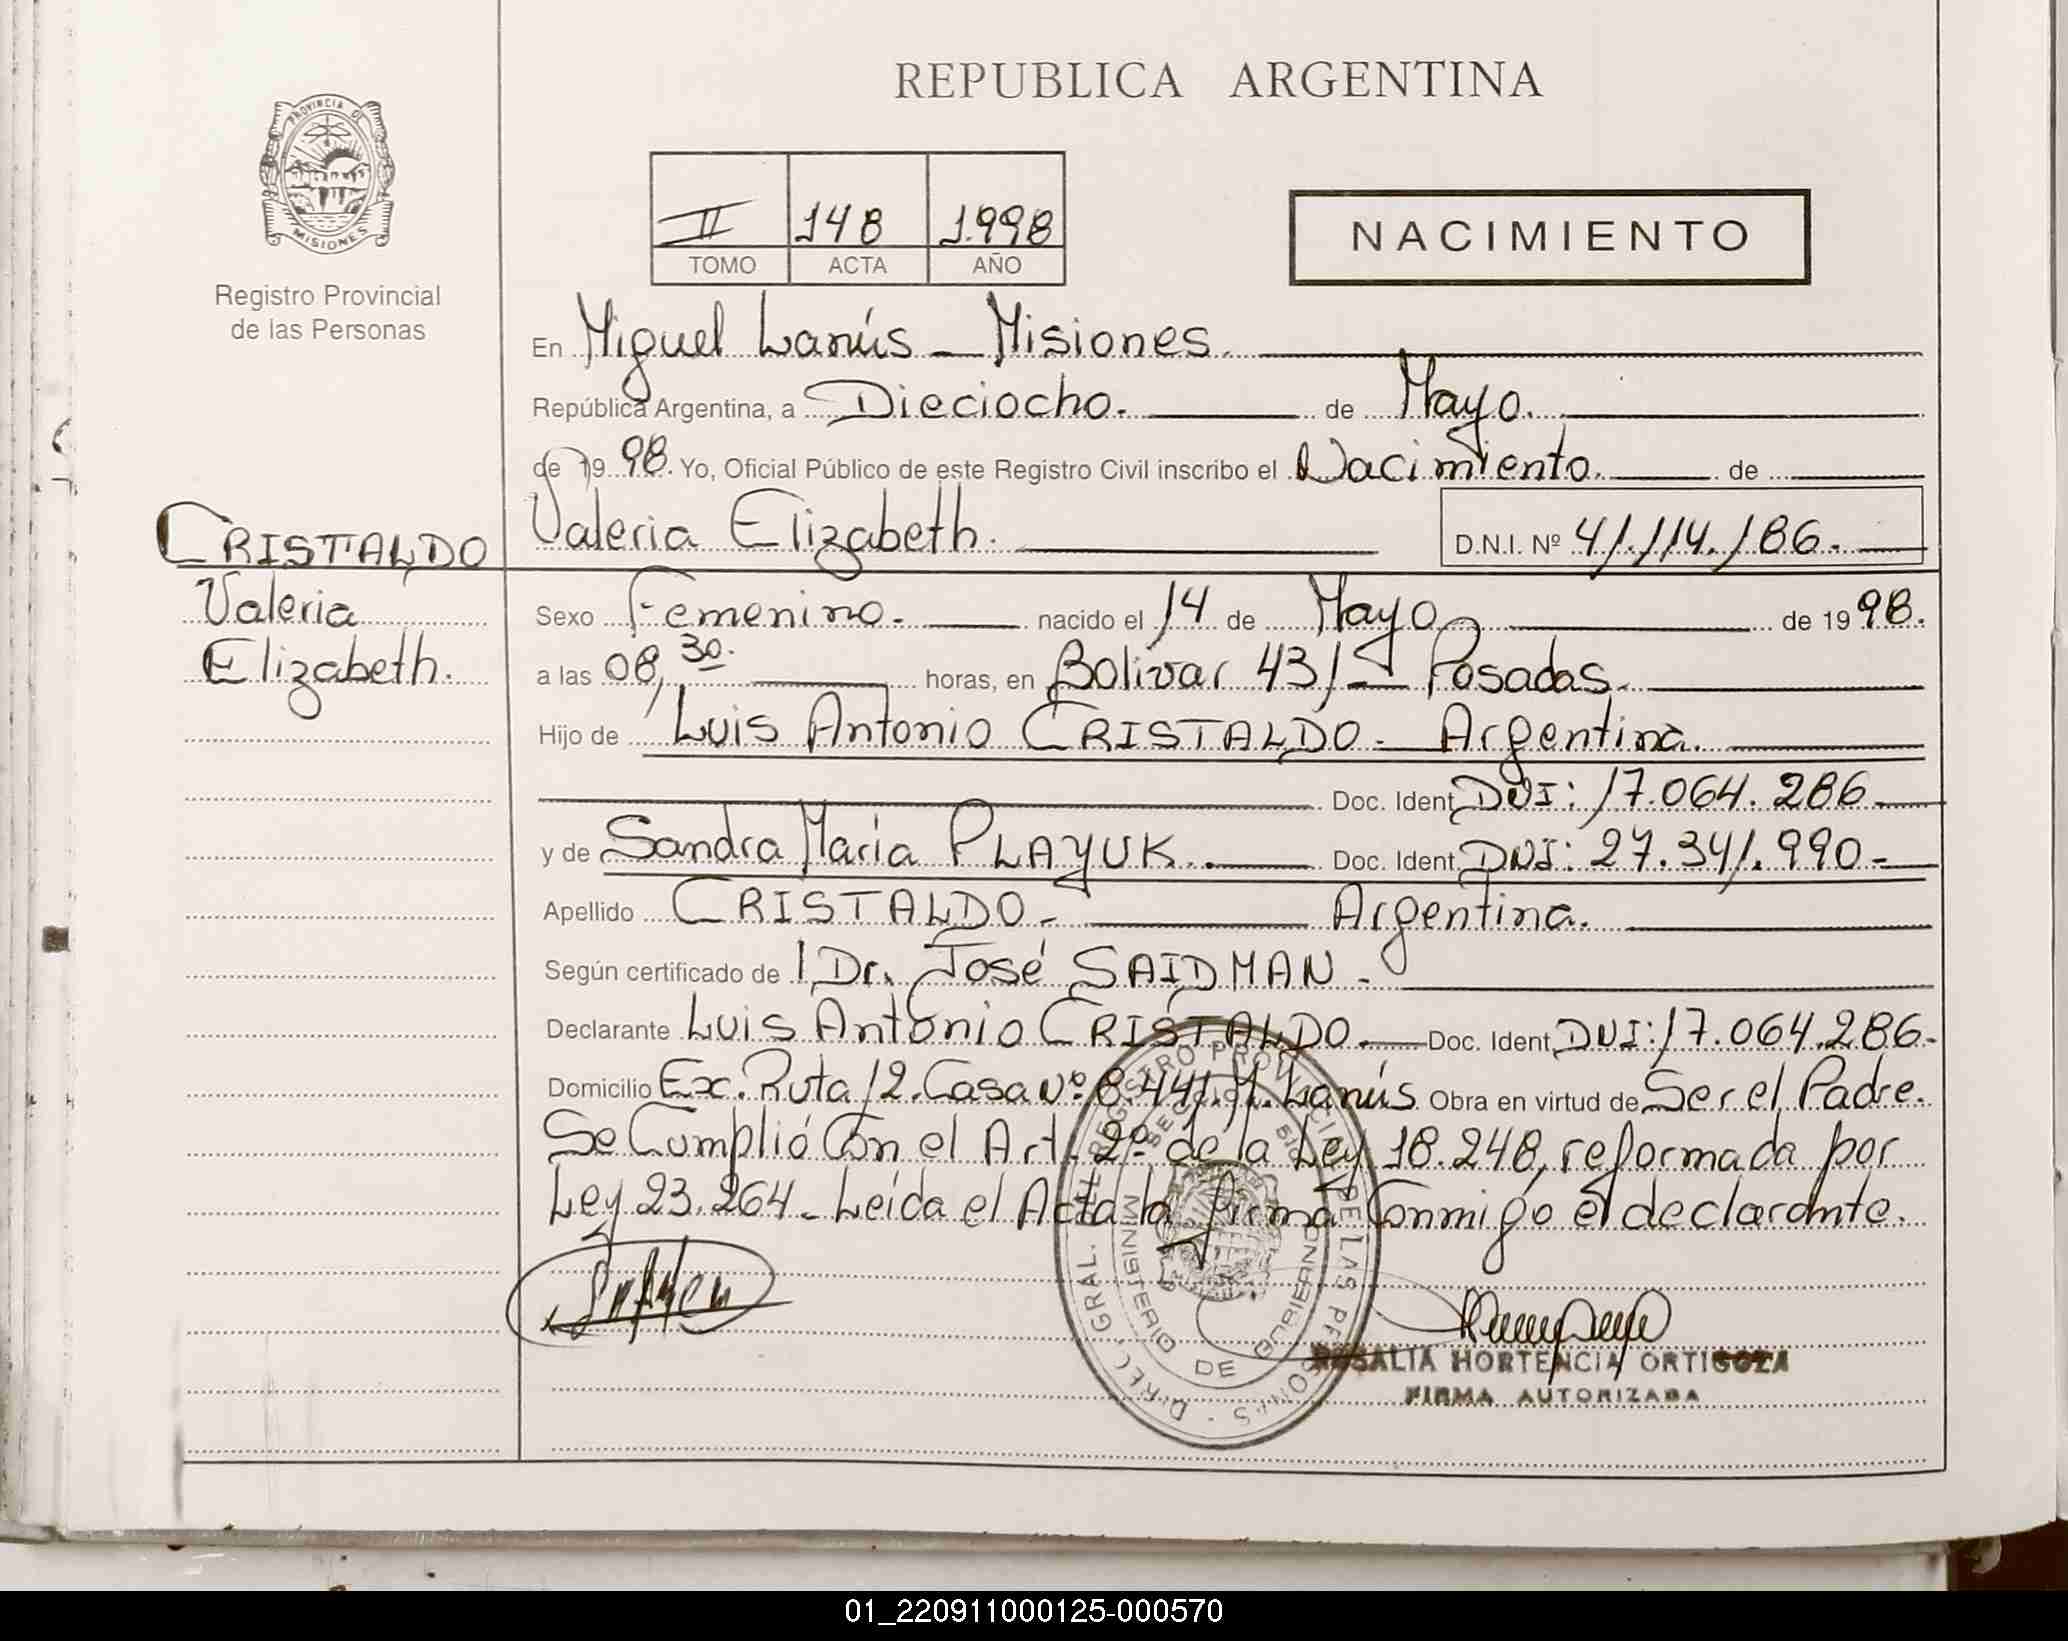 REPUBLICA ARGENTINA
PROVINCIA DE
MISIONES
Registro Provincial
de las Personas
II 148 1.998
TOMO ACTA AÑO
NACIMIENTO
En Miguel Lanús - Misiones.
República Argentina, a Dieciocho. de Mayo.
de 19 98. Yo, Oficial Público de este Registro Civil inscribo el Nacimiento. de
Valeria Elizabeth. D.N.I. Nº 41.114.186.
CRISTALDO
Valeria
Elizabeth.
Sexo Femenino. nacido el 14 de Mayo de 19 98.
a las 08,30. horas, en Bolivar 431 - Posadas.
Hijo de Luis Antonio CRISTALDO - Argentina.
Doc. Ident. DNI: 17.064.286
y de Sandra María PLAYUK. Doc. Ident. DNI: 27.341.990-
Apellido CRISTALDO - Argentina.
Según certificado de Dr. José SAIDMAN -
Declarante Luis Antonio CRISTALDO. Doc. Ident. DNI: 17.064.286-
Domicilio Ex. Ruta 12. Casa Nº 8.441. M. Lanús Obra en virtud de Ser el Padre.
Se Cumplió Con el Art. 2º de la Ley 18.248, reformada por
Ley 23.264 - Leída el Acta la firma Conmigo el declarante.
DIREC. GRAL. DEL REGISTRO PROVINCIAL DE LAS PERSONAS
MINISTERIO DE GOBIERNO
ROSALIA HORTENCIA ORTIGOZA
FIRMA AUTORIZADA
01_220911000125-000570